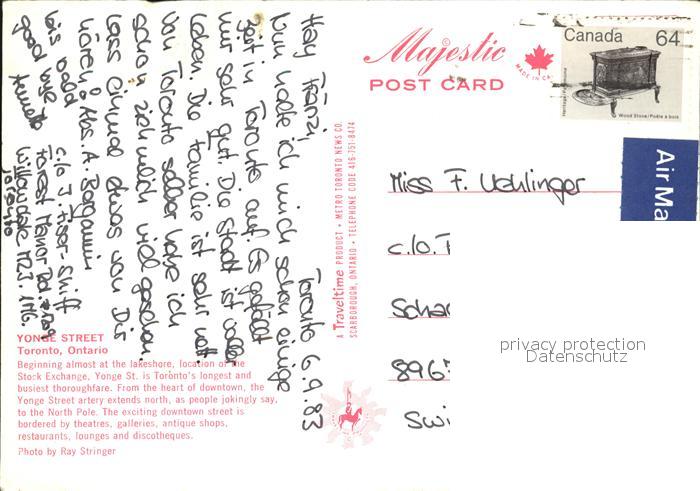 Toronto 6.9.83
Hay Fränzi,
Nun halte ich mich schon einige
Zeit in Toronto auf. Es gefällt
mir sehr gut. Die Stadt ist voller
Leben. Die Familie ist sehr nett.
Von Toronto selber habe ich
schon ziemlich viel gesehen.
Lass einmal etwas von Dir
hören! Abs. A. Bargamin
bis bald
good bye
c/o J.
Forest Manor Rd.
Willowdale M2J 1M6.
Ontario
YONGE STREET
Toronto, Ontario
Beginning almost at the lakeshore, location of the
Stock Exchange, Yonge St. is Toronto's longest and
busiest thoroughfare. From the heart of downtown, the
Yonge Street artery extends north, as people jokingly say,
to the North Pole. The exciting downtown street is
bordered by theatres, galleries, antique shops,
restaurants, lounges and discotheques.
Photo by Ray Stringer
A Traveltime PRODUCT • METRO TORONTO NEWS CO.
SCARBOROUGH, ONTARIO • TELEPHONE CODE 416-751-8474
Majestic
POST CARD
MADE IN
Canada 64
Wood Stove/Poêle à bois
Air Ma
Miss F. Uehlinger
c/o.
Schar
896
Swi
privacy protection
Datenschutz